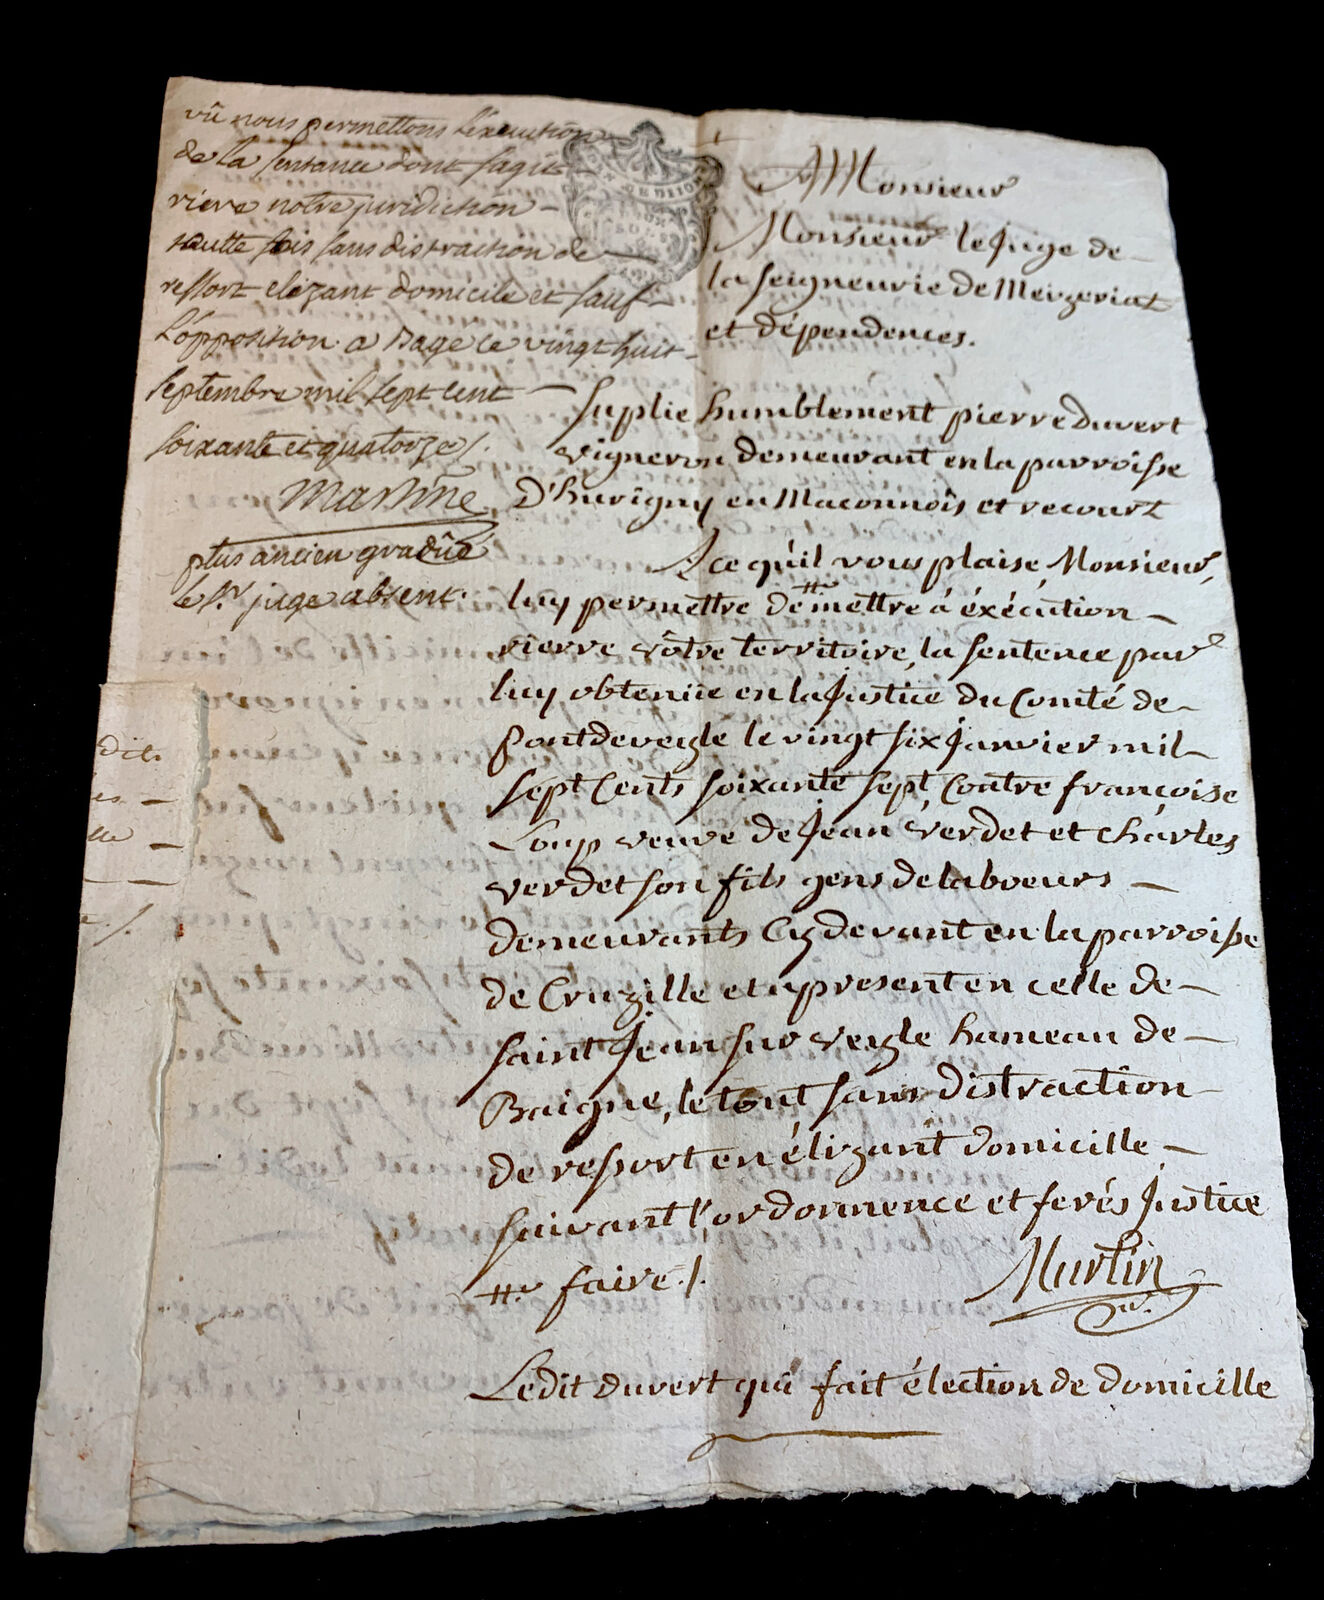 vû nous permettons l'éxecution
de la sentance dont sagit
riere notre juridiction —
toutte fois sans distraction de
ressort elizant domicile et sauf
l'opposition a Bagé ce vingt huit
septembre mil sept cent —
soixante et quatorze /.
Martine
plus ancien gradûé
le Sr. juge absent.
A Monsieur
Monsieur le Juge de
la seigneurie de Meizeriat
et dépendences.
Suplie humblement pierre duvert
vigneron demeurant en la parroisse
D'hurigny en Maconnois et recourt
A ce qu'il vous plaise, Monsieur,
luy permettre de mettre à éxécution —
rierre vôtre territoire, la sentence par
luy obtenüe en la Justice du Comté de
pontdeveizle le vingt six Janvier mil
sept Cents soixante sept Contre françoise
Loup veuve de Jean Verdet et Charles
verdet son fils gens de laboeurs —
demeurants Cy devant en la parroisse
de Cruzille et a present en celle de —
saint Jean sur veizle hameau de —
Baigne, le tout sans distraction
de ressort en élizant domicille —
suivant l'ordonnence et ferés Justice
faire /.
Martin
Ledit duvert qui fait élection de domicille
dit.
es —
lle —